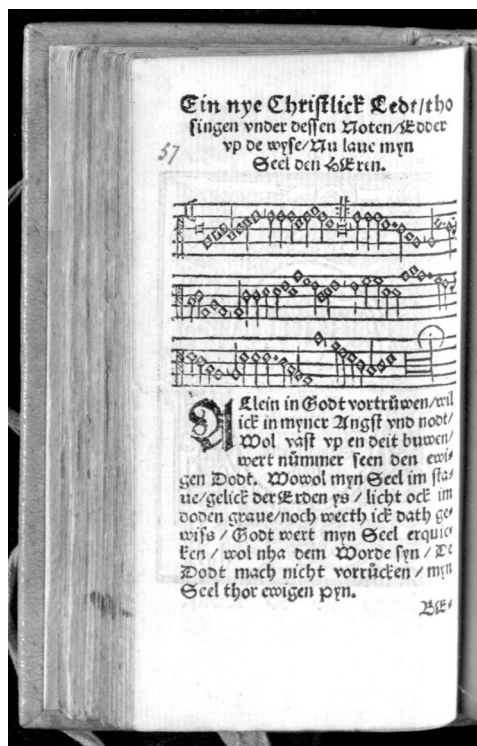 Ein nye Christlick Ledt/tho
singen vnder dessen Noten/Edder
vp de wyse/Nu laue myn
Seel den HEren.
57
ALlein in Godt vortrůwen/wil
ick in myner Angst vnd nodt/
Wol vast vp en deit buwen/
wert nůmmer seen den ewi⸗
gen Dodt. Wowol myn Seel im sta⸗
ue/gelick der Erden ys / licht ock im
doden graue/noch weeth ick dath ge⸗
wiss / Godt wert myn Seel erquic⸗
ken / wol nha dem Worde syn / De
Dodt mach nicht vorrůcken / myn
Seel thor ewigen pyn.